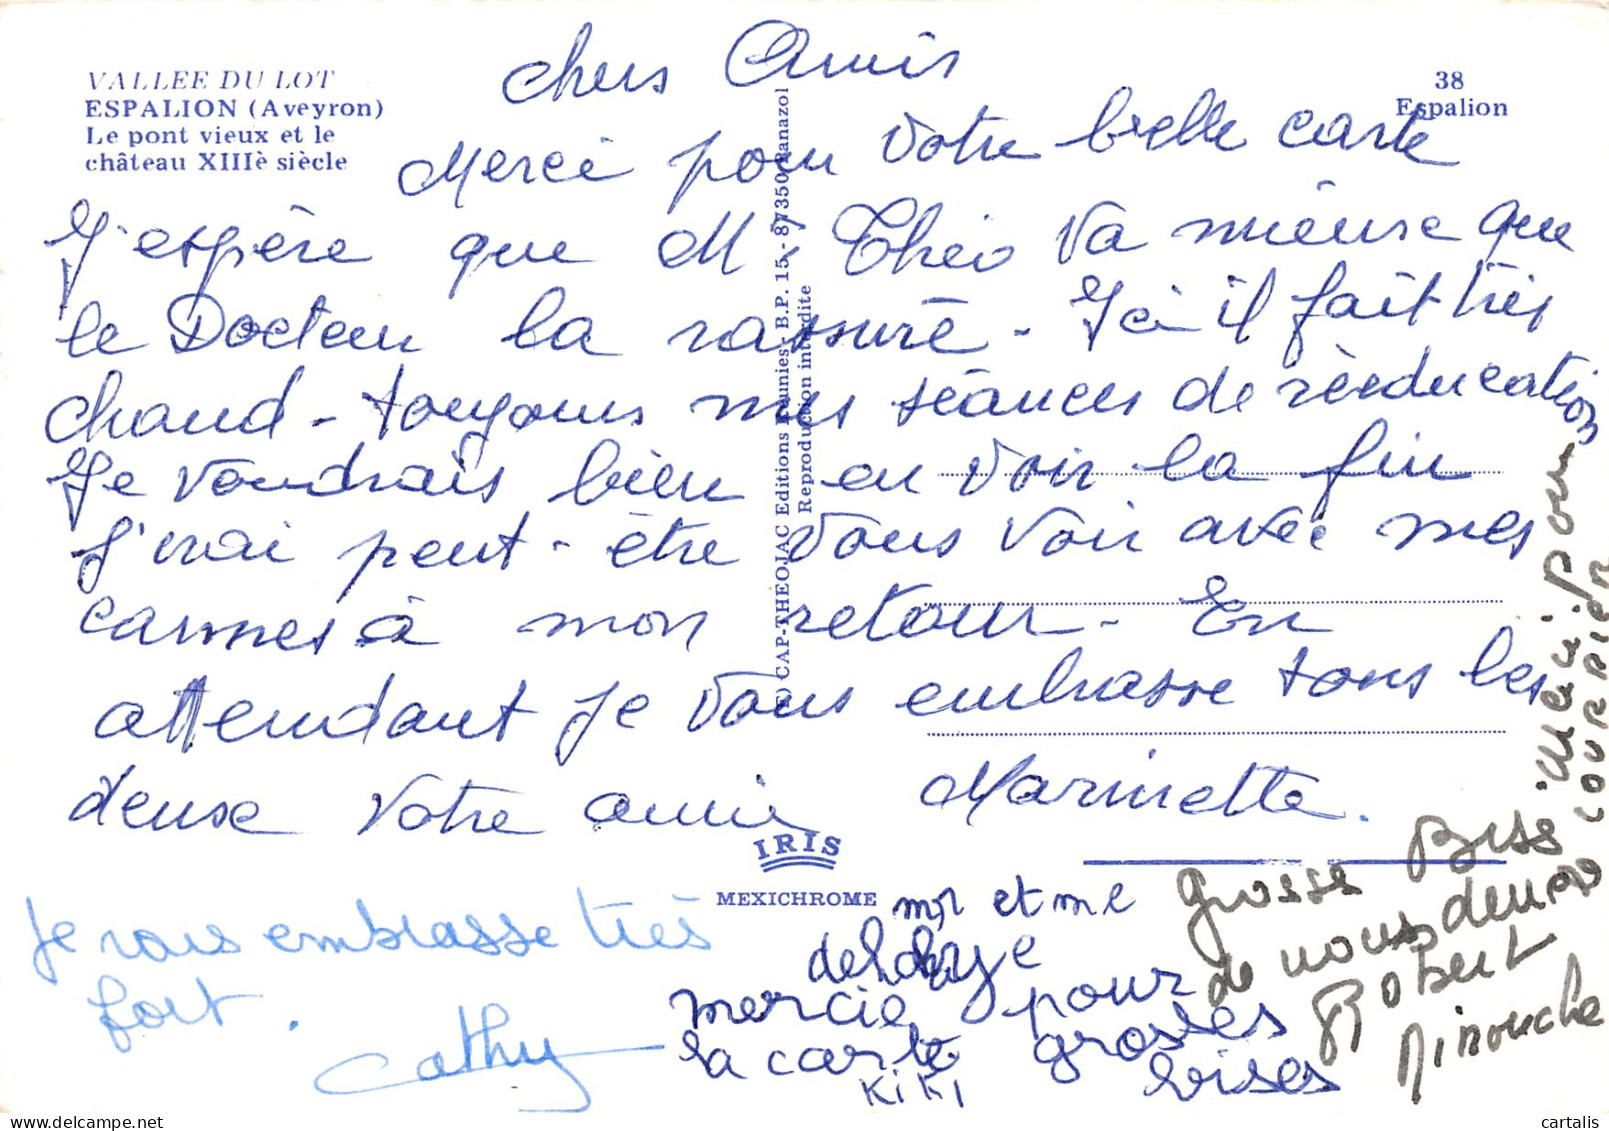 VALLEE DU LOT
ESPALION (Aveyron)
Le pont vieux et le
château XIIIè siècle
38
Espalion
chers Amis
Merci pour votre belle carte
J'espère que M Théo va mieuse que
le Docteur la rassuré - Ici il fait très
chaud - toujours mes séances de rééducation
Je voudrais bien en voir la fin
J'irai peut-être vous voir avec mes
cannes à mon retour - En
attendant je vous embrasse tous les
deuse votre amie Marinette.
CAP-THEOJAC Editions Réunies - B.P. 15 - 87350 Panazol
Reproduction interdite
IRIS
MEXICHROME
Je vous embrasse très
fort.
Cathy
mr et me
delahaye
mercie pour
la carte grosses
bises
KiKi
Merci pour
COURRIER
grosse Biss
de nous deux
Robert
Ninouche
cartalis | delcampe.net